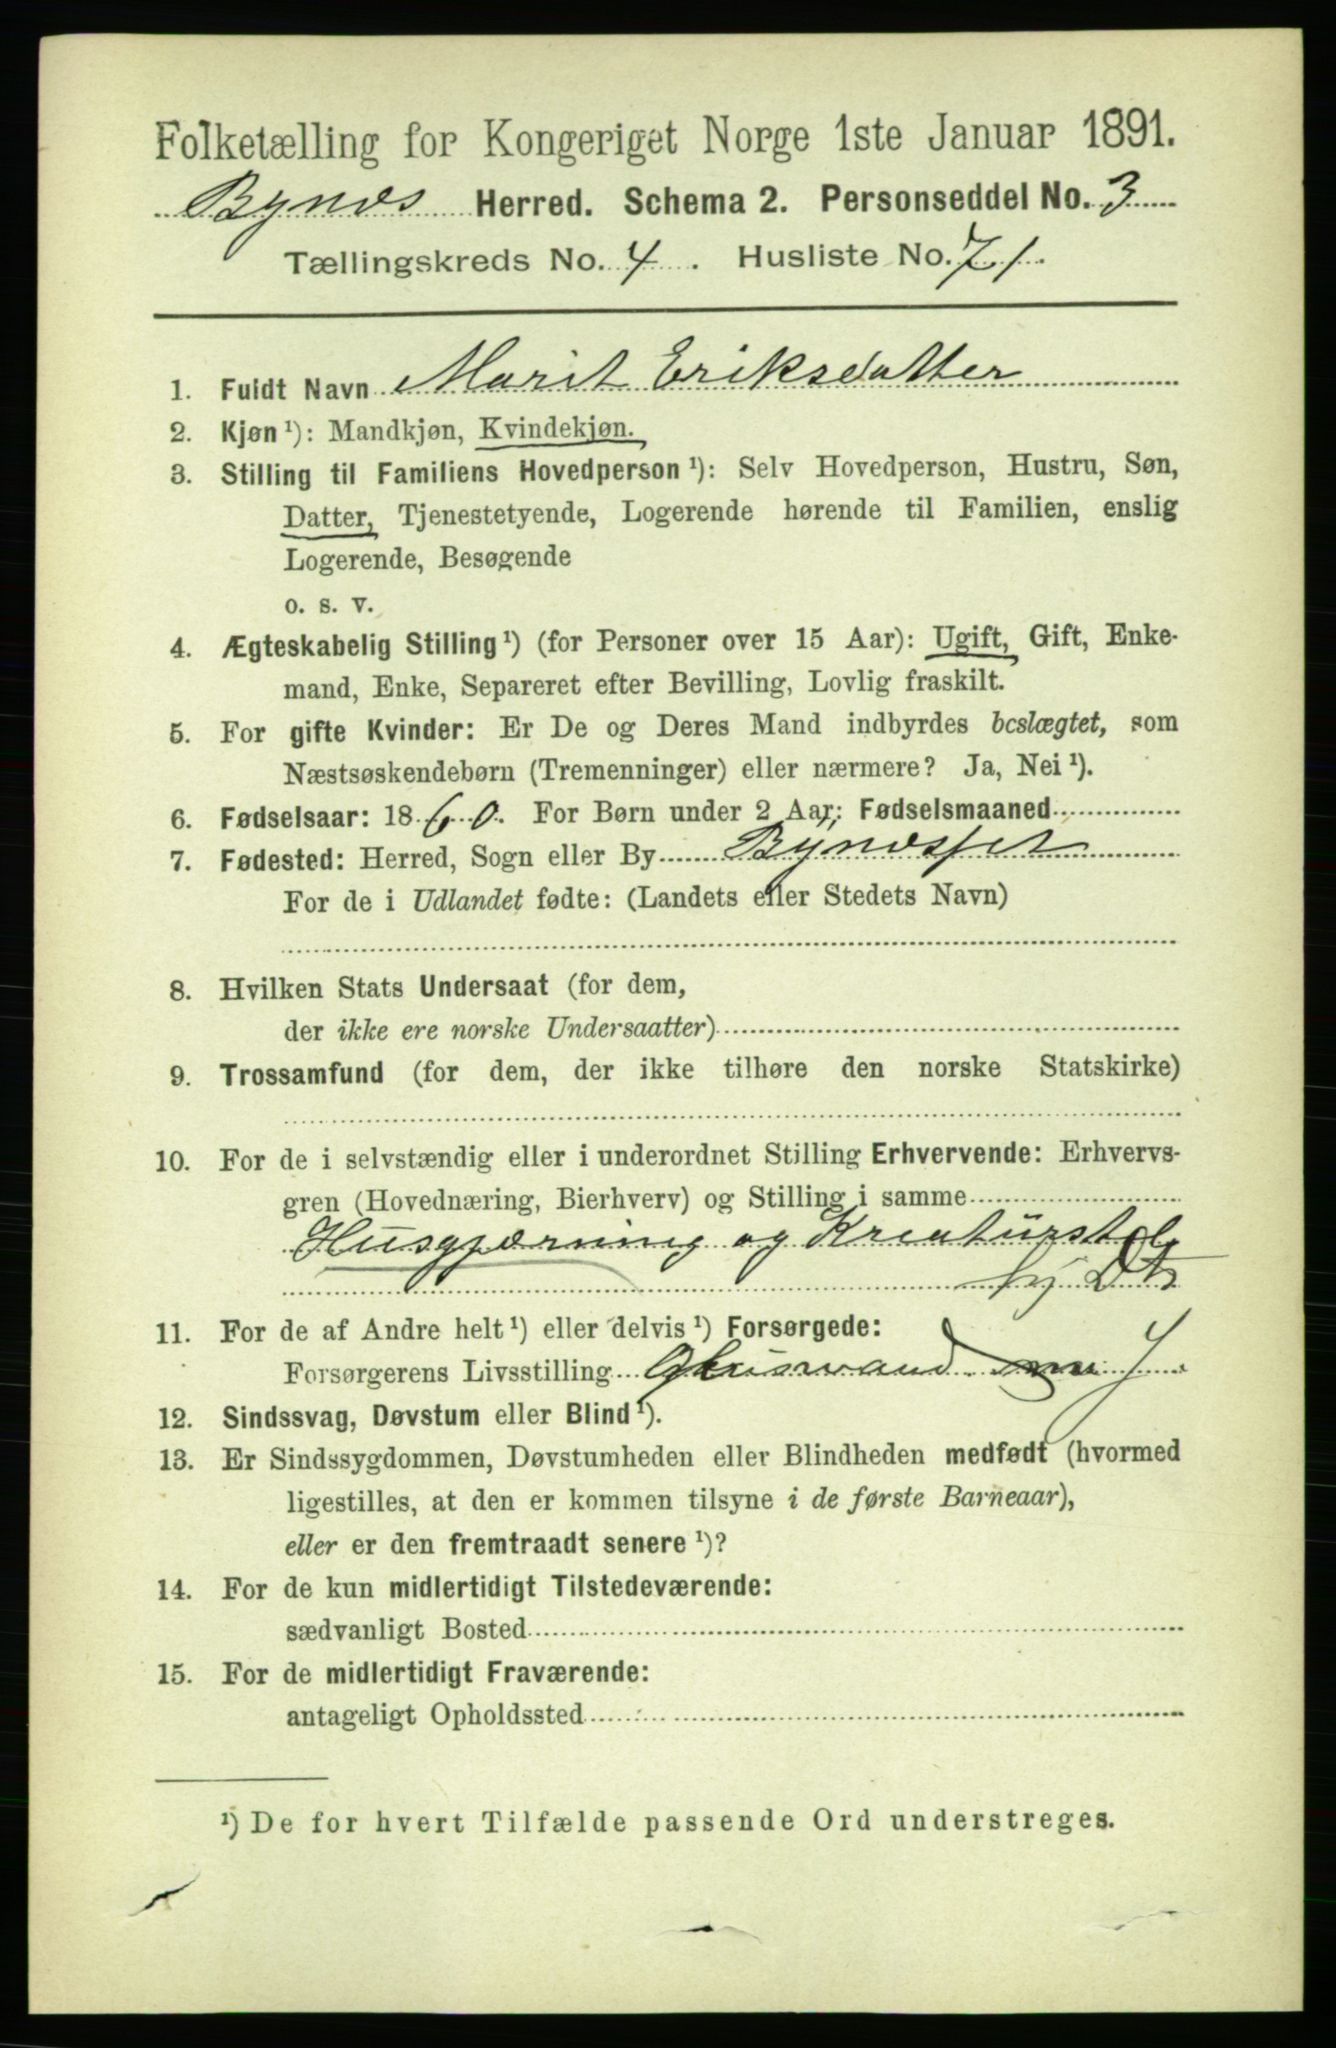 Folketælling for Kongeriget Norge 1ste Januar 1891.
Bynæs Herred. Schema 2. Personseddel No. 3
Tællingskreds No. 4. Husliste No. 71.
1. Fuldt Navn Marit Eriksdatter
2. Kjøn ¹): Mandkjøn, Kvindekjøn.
3. Stilling til Familiens Hovedperson ¹): Selv Hovedperson, Hustru, Søn,
Datter, Tjenestetyende, Logerende hørende til Familien, enslig
Logerende, Besøgende
o. s. v.
4. Ægteskabelig Stilling ¹) (for Personer over 15 Aar): Ugift, Gift, Enke-
mand, Enke, Separeret efter Bevilling, Lovlig fraskilt.
5. For gifte Kvinder: Er De og Deres Mand indbyrdes beslægtet, som
Næstsøskendebørn (Tremenninger) eller nærmere? Ja, Nei ¹).
6. Fødselsaar: 1860. For Børn under 2 Aar: Fødselsmaaned
7. Fødested: Herred, Sogn eller By Bynæsset
For de i Udlandet fødte: (Landets eller Stedets Navn)
8. Hvilken Stats Undersaat (for dem,
der ikke ere norske Undersaatter)
9. Trossamfund (for dem, der ikke tilhøre den norske Statskirke)
10. For de i selvstændig eller i underordnet Stilling Erhvervende: Erhvervs-
gren (Hovednæring, Bierhverv) og Stilling i samme
Husgjærning og Kreaturstel
11. For de af Andre helt ¹) eller delvis ¹) Forsørgede:
Forsørgerens Livsstilling
12. Sindssvag, Døvstum eller Blind ¹).
13. Er Sindssygdommen, Døvstumheden eller Blindheden medfødt (hvormed
ligestilles, at den er kommen tilsyne i de første Barneaar),
eller er den fremtraadt senere ¹)?
14. For de kun midlertidigt Tilstedeværende:
sædvanligt Bosted
15. For de midlertidigt Fraværende:
antageligt Opholdssted
¹) De for hvert Tilfælde passende Ord understreges.